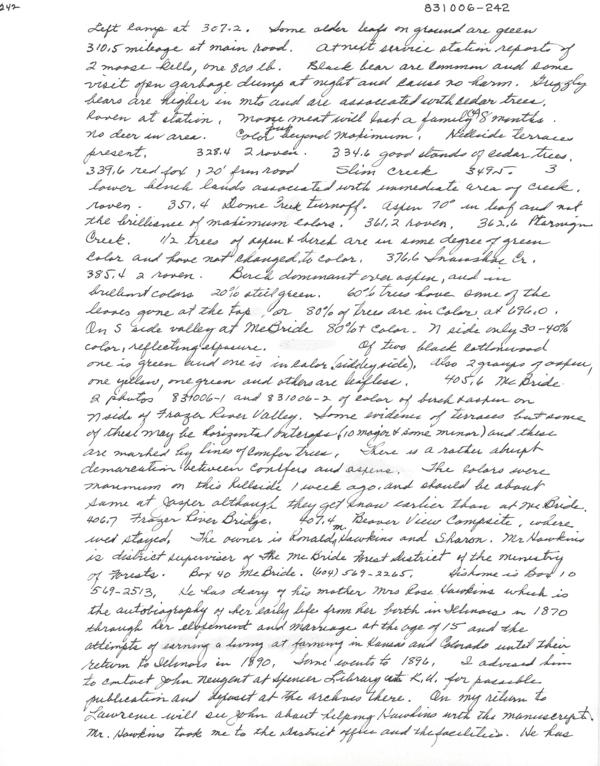 242
831006-242
Left camp at 307.2. Some alder leafs on ground are green
310.5 mileage at main road. At next service station reports of
2 moose kills, one 800 lb. Black bear are common and some
visit open garbage dump at night and cause no harm. Grizzly
bears are higher in mts and are associated with cedar trees.
Raven at station. Moose meat will last a family of 4 8 months.
no deer in area. Color just beyond maximum. Hillside terraces
present. 328.4 2 raven. 334.6 good stands of cedar trees.
339.6 red fox, 20' from road Slim Creek 349.5. 3
lower bench lands associated with immediate area of creek.
raven. 357.4 Dome Creek turnoff. Aspen 70° in leaf and not
the brilliance of maximum colors. 361.2 raven. 362.6 Ptarmigan
Creek. 1/2 trees of aspen & birch are in some degree of green
color and have not changed to color. 376.6 Snowshoe Cr.
385.4 2 raven. Birch dominant over aspen, and in
brilliant colors 20% still green. 60% trees have some of the
leaves gone at the top, or 80% of trees are in color at 696.0.
On S side valley at McBride 80%+ color. N side only 30-40%
color, reflecting exposure. Of two black cottonwood
one is green and one is in color (side by side). Also 2 groups of aspen,
one yellow, one green and others are leafless. 405.6 McBride
2 photos 831006-1 and 831006-2 of color of birch & aspen on
N side of Frazer River Valley. Some evidence of terraces but some
of these may be horizontal outcrops (10 major & some minor) and these
are marked by lines of conifer trees. There is a rather abrupt
demarcation between conifers and aspens. The colors were
maximum on this hillside 1 week ago. and should be about
same at Jasper although they get snow earlier than at McBride.
406.7 Frazer River Bridge. 407.4 Beaver View Campsite, where
we stayed. The owner is Ronald M. Hawkins and Sharon. Mr Hawkins
is district supervisor of the McBride Forest District of the ministry
of Forests. Box 40 McBride. (604) 569-2265. His home is Box 10
569-2513. He has deary of his mother Mrs Rose Hawkins which is
the autobiography of her early life from her birth in Illinois in 1870
through her elopement and marriage at the age of 15 and the
attempts of earning a living at farming in Kansas and Colorado until their
return to Illinois in 1890. Some events to 1896. I advised him
to contact John Neugent at Spencer Library at K.U. for possible
publication and deposit at the archives there. On my return to
Lawrence will see John about helping Hawkins with the manuscript.
Mr. Hawkins took me to the District office and the facilities. He has